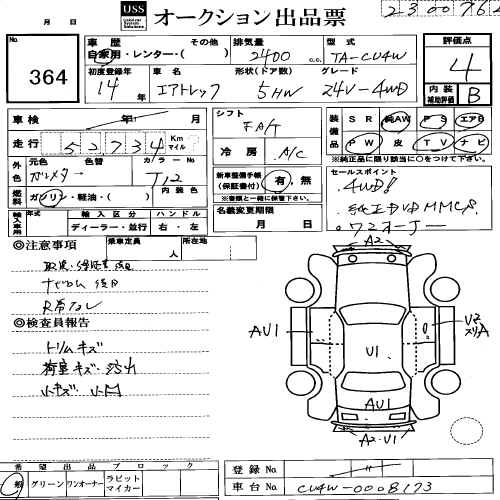 月　日
USS オークション出品票
No.
364
車歴　自家用・レンター・(　　)　その他
排気量　2400 c.c.
型式　TA-CU4W
評価点　4
初度登録年　14年
車名　エアトレック
形状(ドア数)　5HW
グレード　24V-4WD
内装補助評価　B
車検　年　月
走行　52734 Km マイル
シフト　FA/T
冷房　A/C
装備品　SR　純AW　PS　エアB
PW　皮　TV　ナビ
※純正品に限り該当に○を付ける。
外色　元色　色替　カラーNo
ガンメタ　T12
燃料　ガソリン・軽油・(　　)　内装色
新車整備手帳(保証書付)　有・無
※書類と一緒に保管下さい。
名義変更期限　月　日
セールスポイント
4WD!
純正DVD MMCS
ワンオーナー
輸入車用　年式　輸入区分　ハンドル
ディーラー・並行　右・左
◎注意事項　乗車定員　人　所在地
取説・保証書 後日
ナビロム 後日
R席ナシ
◎検査員報告
トリムキズ
荷室キズ・汚れ
A2
AU1
U1
U2
スリA
AU1
A2・U1
希望出品ブロック
般　グリーン　ワンオーナー　ラビット　マイカー
登録No
車台No　CU4W-0008173